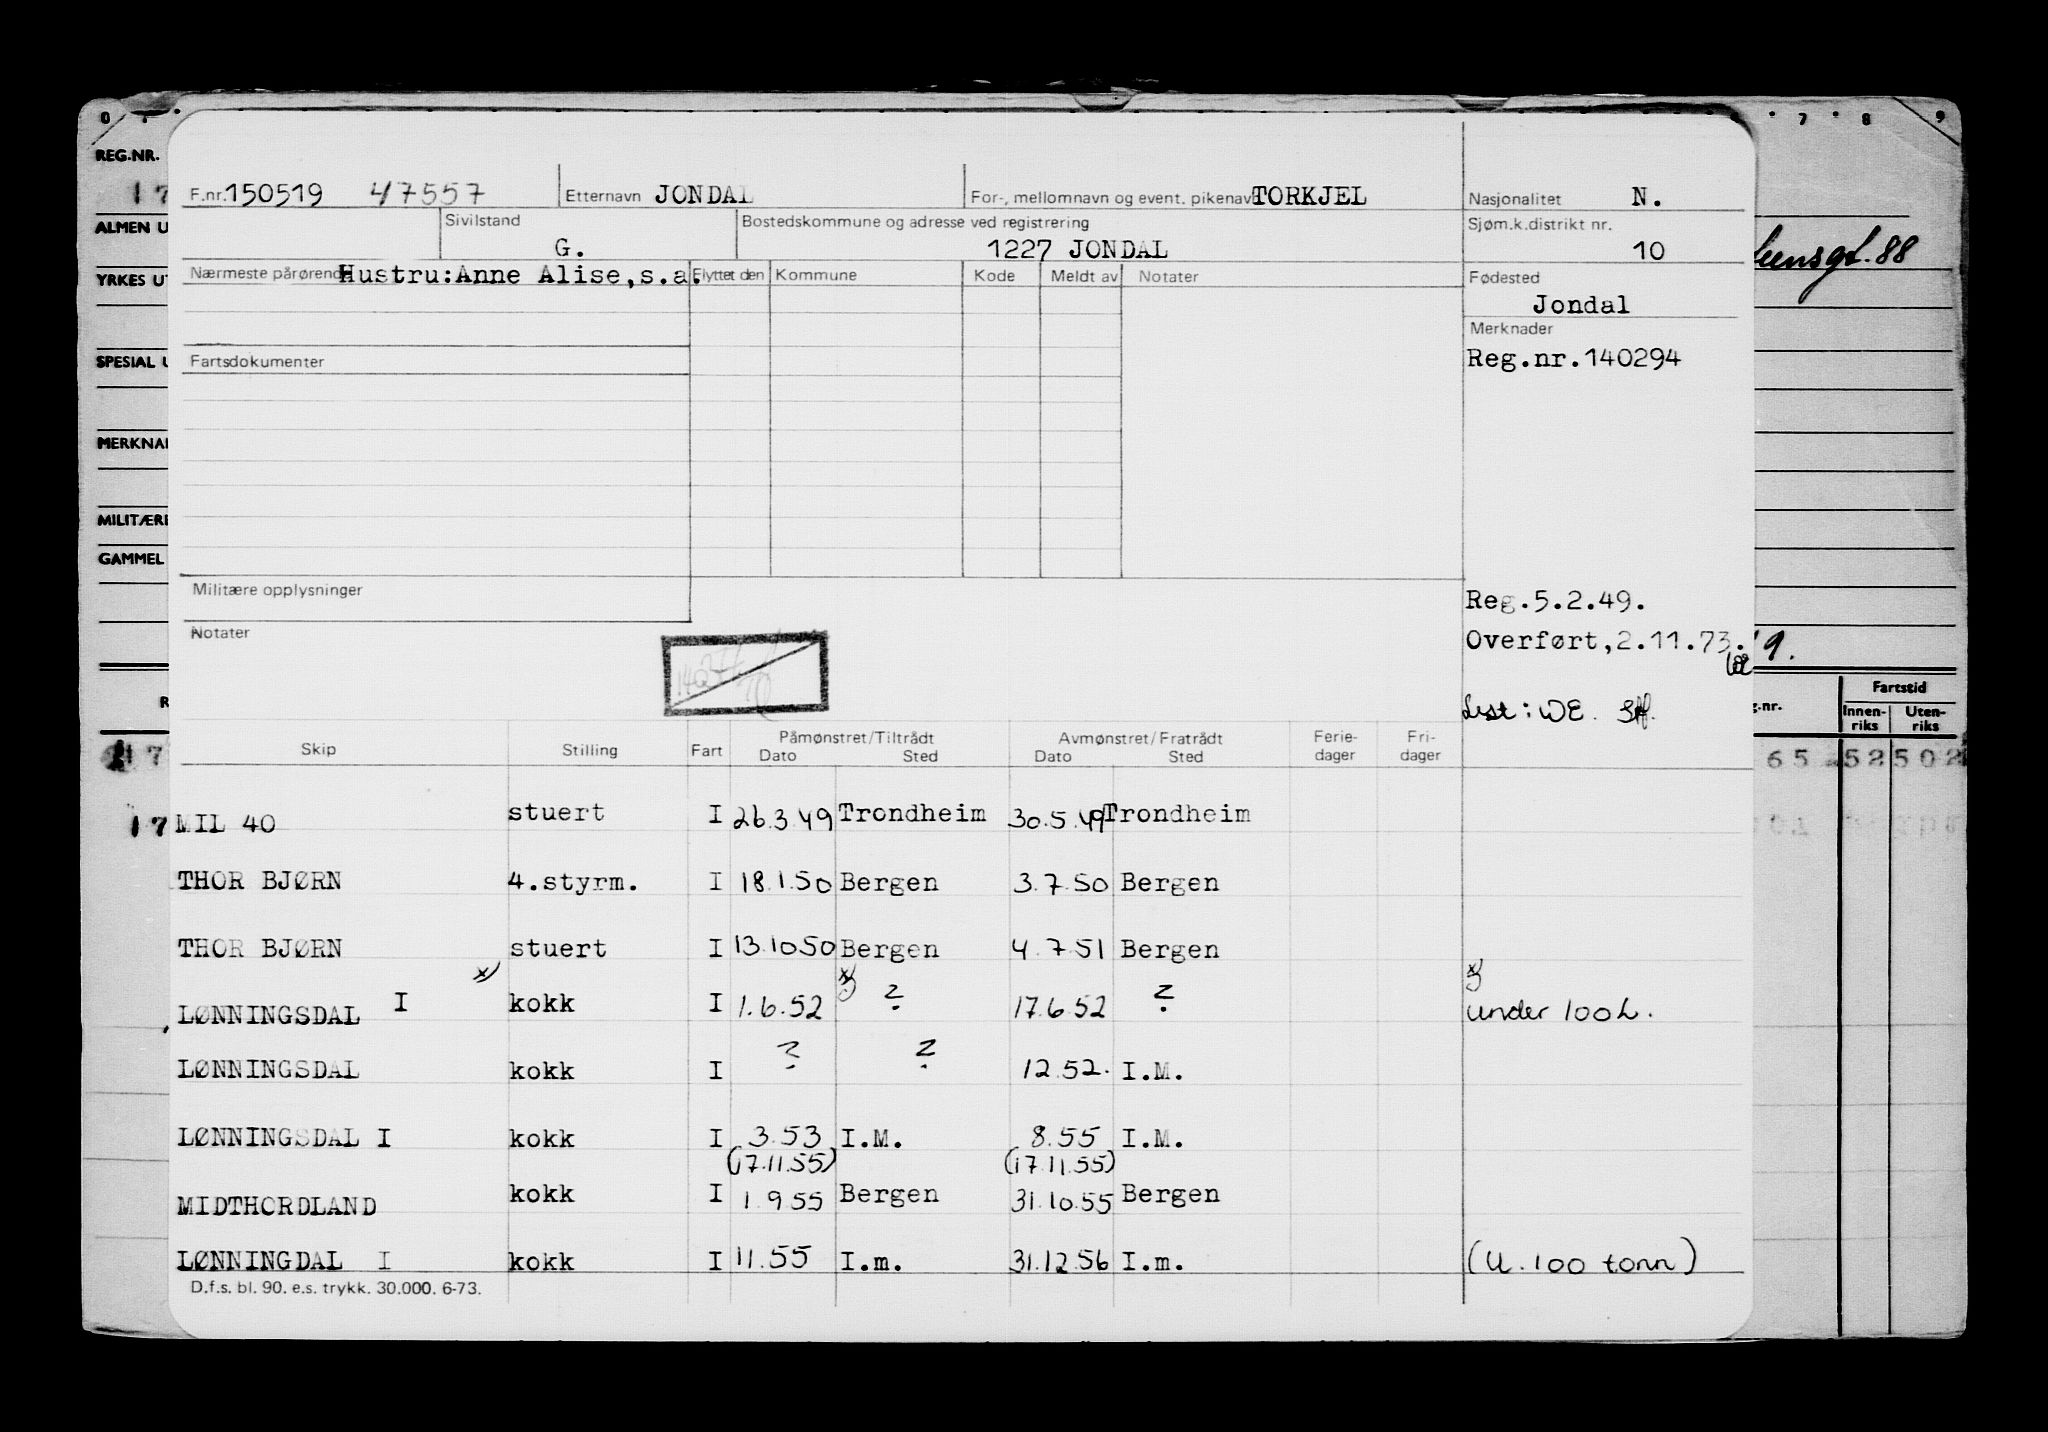 0 7 8 9
REG.NR.
17
F.nr. 150519 47557 Etternavn JONDAL For-, mellomnavn og event. pikenavn TORKJEL Nasjonalitet N.
ALMEN U
Sivilstand G. Bostedskommune og adresse ved registrering 1227 JONDAL Sjøm.k.distrikt nr. 10
88
YRKES UT
Nærmeste pårørende Hustru:Anne Alise,s.a. Flyttet den Kommune Kode Meldt av Notater Fødested
Jondal
Merknader
SPESIAL U
Fartsdokumenter
Reg.nr.140294
MERKNAD
MILITÆRE
GAMMEL
Militære opplysninger
Reg.5.2.49.
Notater
Overført,2.11.73. 9.
Lest: WE.
R
g.nr. Fartstid
Innen-riks Uten-riks
Skip Stilling Fart Påmønstret/Tiltrådt Dato Sted Avmønstret/Fratrådt Dato Sted Ferie-dager Fri-dager
17
65 52 502
17
MIL 40 stuert I 26.3.49 Trondheim 30.5.49 Trondheim
THOR BJØRN 4.styrm. I 18.1.50 Bergen 3.7.50 Bergen
THOR BJØRN stuert I 13.10.50 Bergen 4.7.51 Bergen
x) x) x)
LØNNINGSDAL I kokk I 1.6.52 ? 17.6.52 ? under 100 t.
LØNNINGSDAL kokk I ? ? 12.52. I.M.
LØNNINGSDAL I kokk I 3.53 I.M. 8.55 I.M.
(17.11.55) (17.11.55)
MIDTHORDLAND kokk I 1.9.55 Bergen 31.10.55 Bergen
LØNNINGDAL I kokk I 11.55 I.m. 31.12.56 I.m. (U. 100 tonn)
D.f.s. bl. 90. e.s. trykk. 30.000. 6-73.